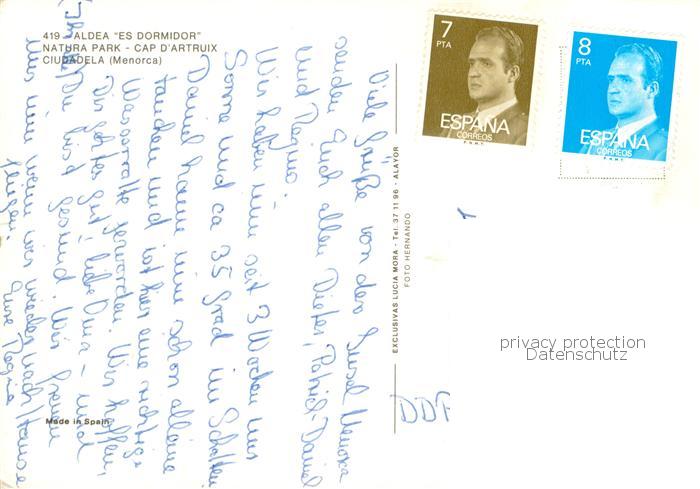 419 - ALDEA "ES DORMIDOR"
NATURA PARK - CAP D'ARTRUIX
CIUDADELA (Menorca)
7
PTA
ESPAÑA
CORREOS
F.N.M.T.
8
PTA
ESPAÑA
CORREOS
F.N.M.T.
Viele Grüße von der Insel Menorca
senden Euch allen Dieter, Patrick-Daniel
und Regina.
Wir haben nun seit 3 Wochen nur
Sonne und ca 35 Grad im Schatten
Daniel kann nun schon alleine
tauchen und ist hier eine richtige
Wasserratte geworden. Wir hoffen,
Dir geht es gut, liebe Oma - und
Du bist gesund. Wir freuen
uns nun wenn wir wieder nach Hause
fliegen.
Eure Regina
EXCLUSIVAS LUCIA MORA - Tel. 37 11 96 - ALAYOR
FOTO HERNANDO
Made in Spain
privacy protection
Datenschutz